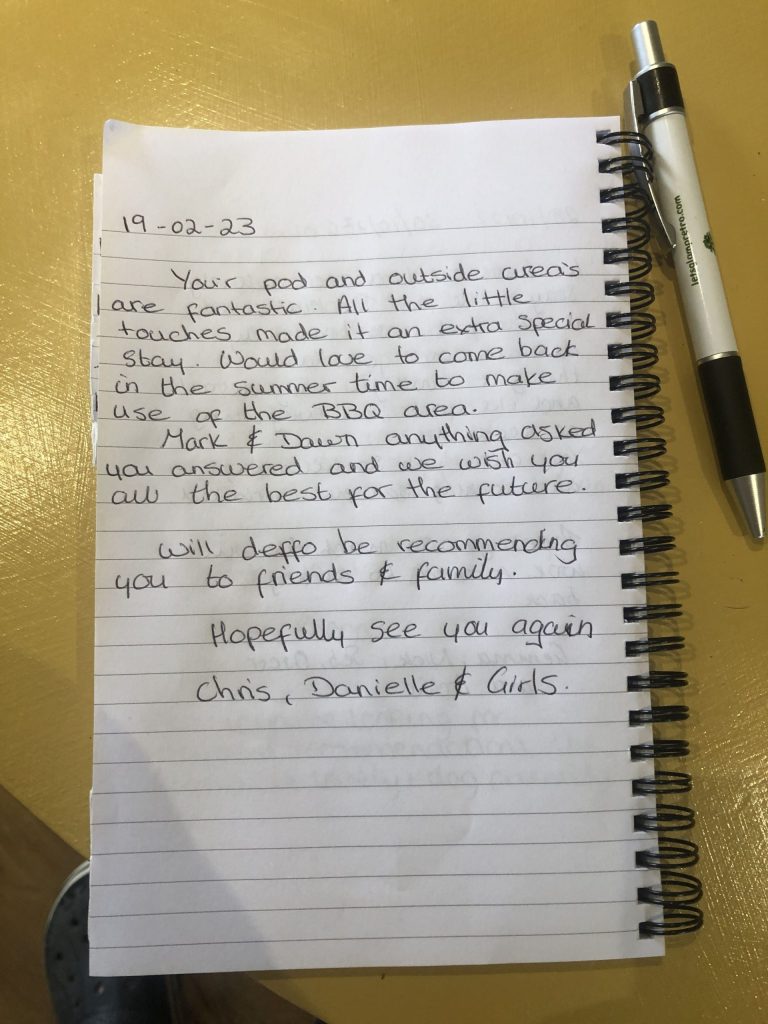 19-02-23
Your pod and outside area's
are fantastic. All the little
touches made it an extra special
stay. Would love to come back
in the summer time to make
use of the BBQ area.
Mark & Dawn anything asked
you answered and we wish you
all the best for the future.
Will deffo be recommending
you to friends & family.
Hopefully see you again
Chris, Danielle & Girls.
letsglampretro.com